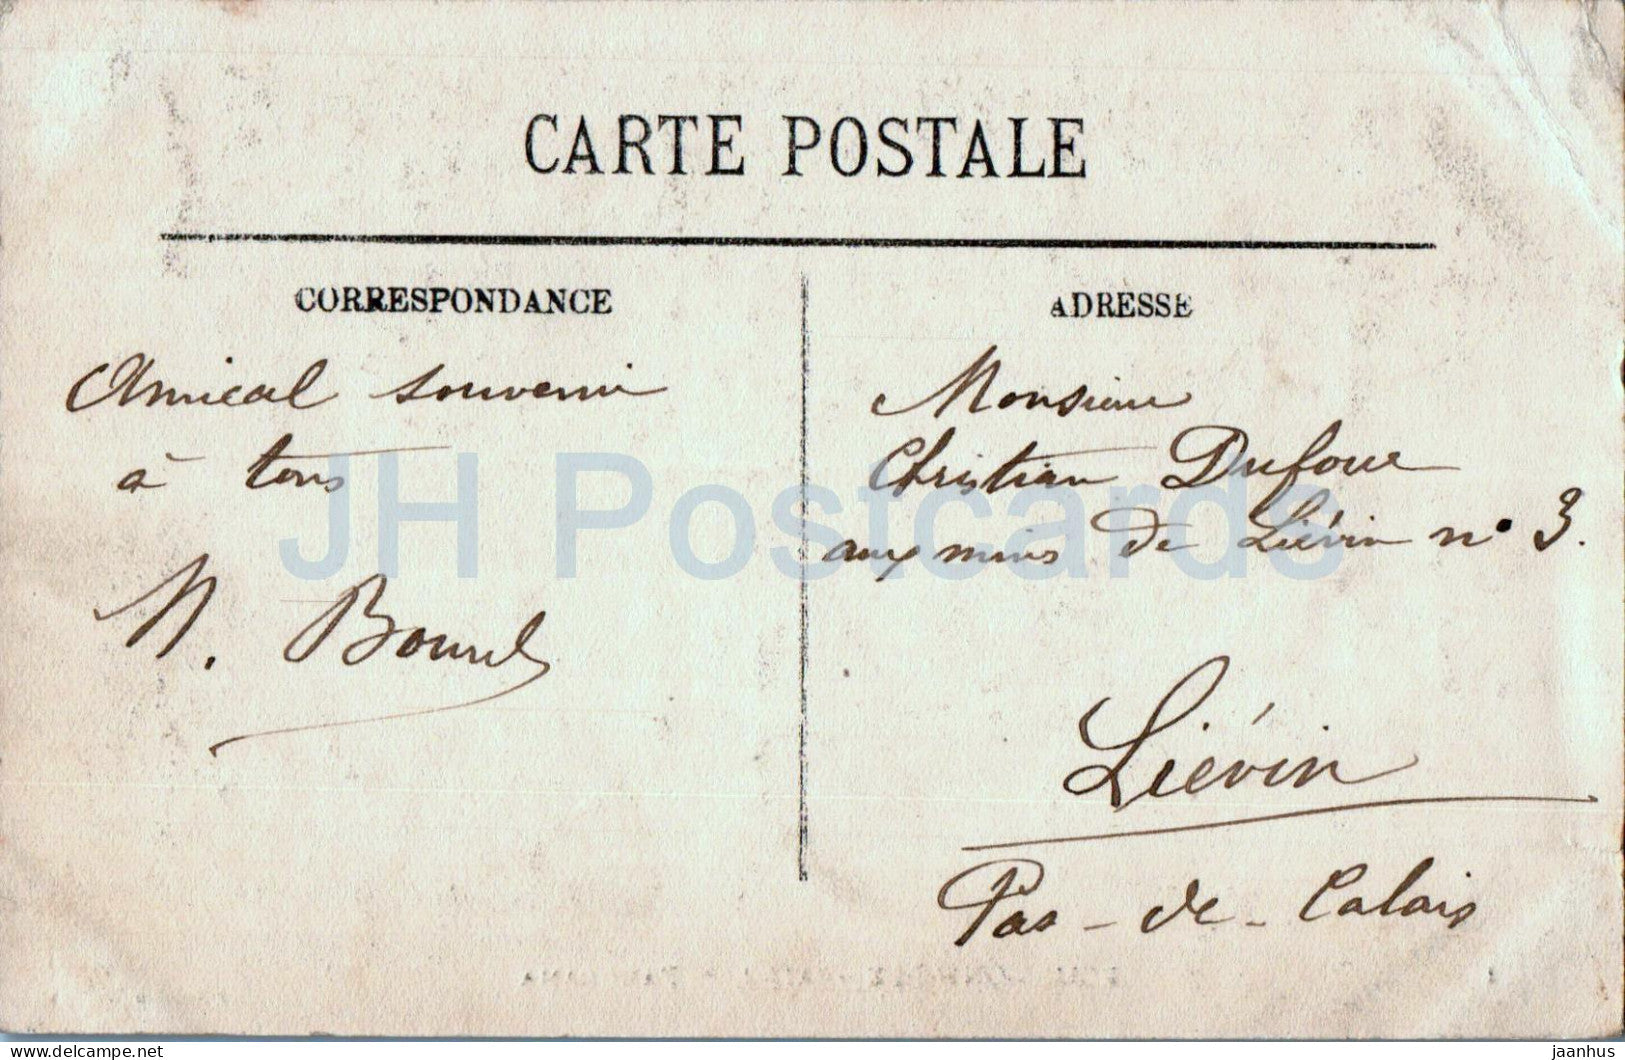 CARTE POSTALE
CORRESPONDANCE
Amical souvenir
à tous
N.
ADRESSE
Monsieur
Christian Dufour
aux mines de Liévin n° 3.
Liévin
Pas-de-Calais
JH Postcards
delcampe.net
jaanhus